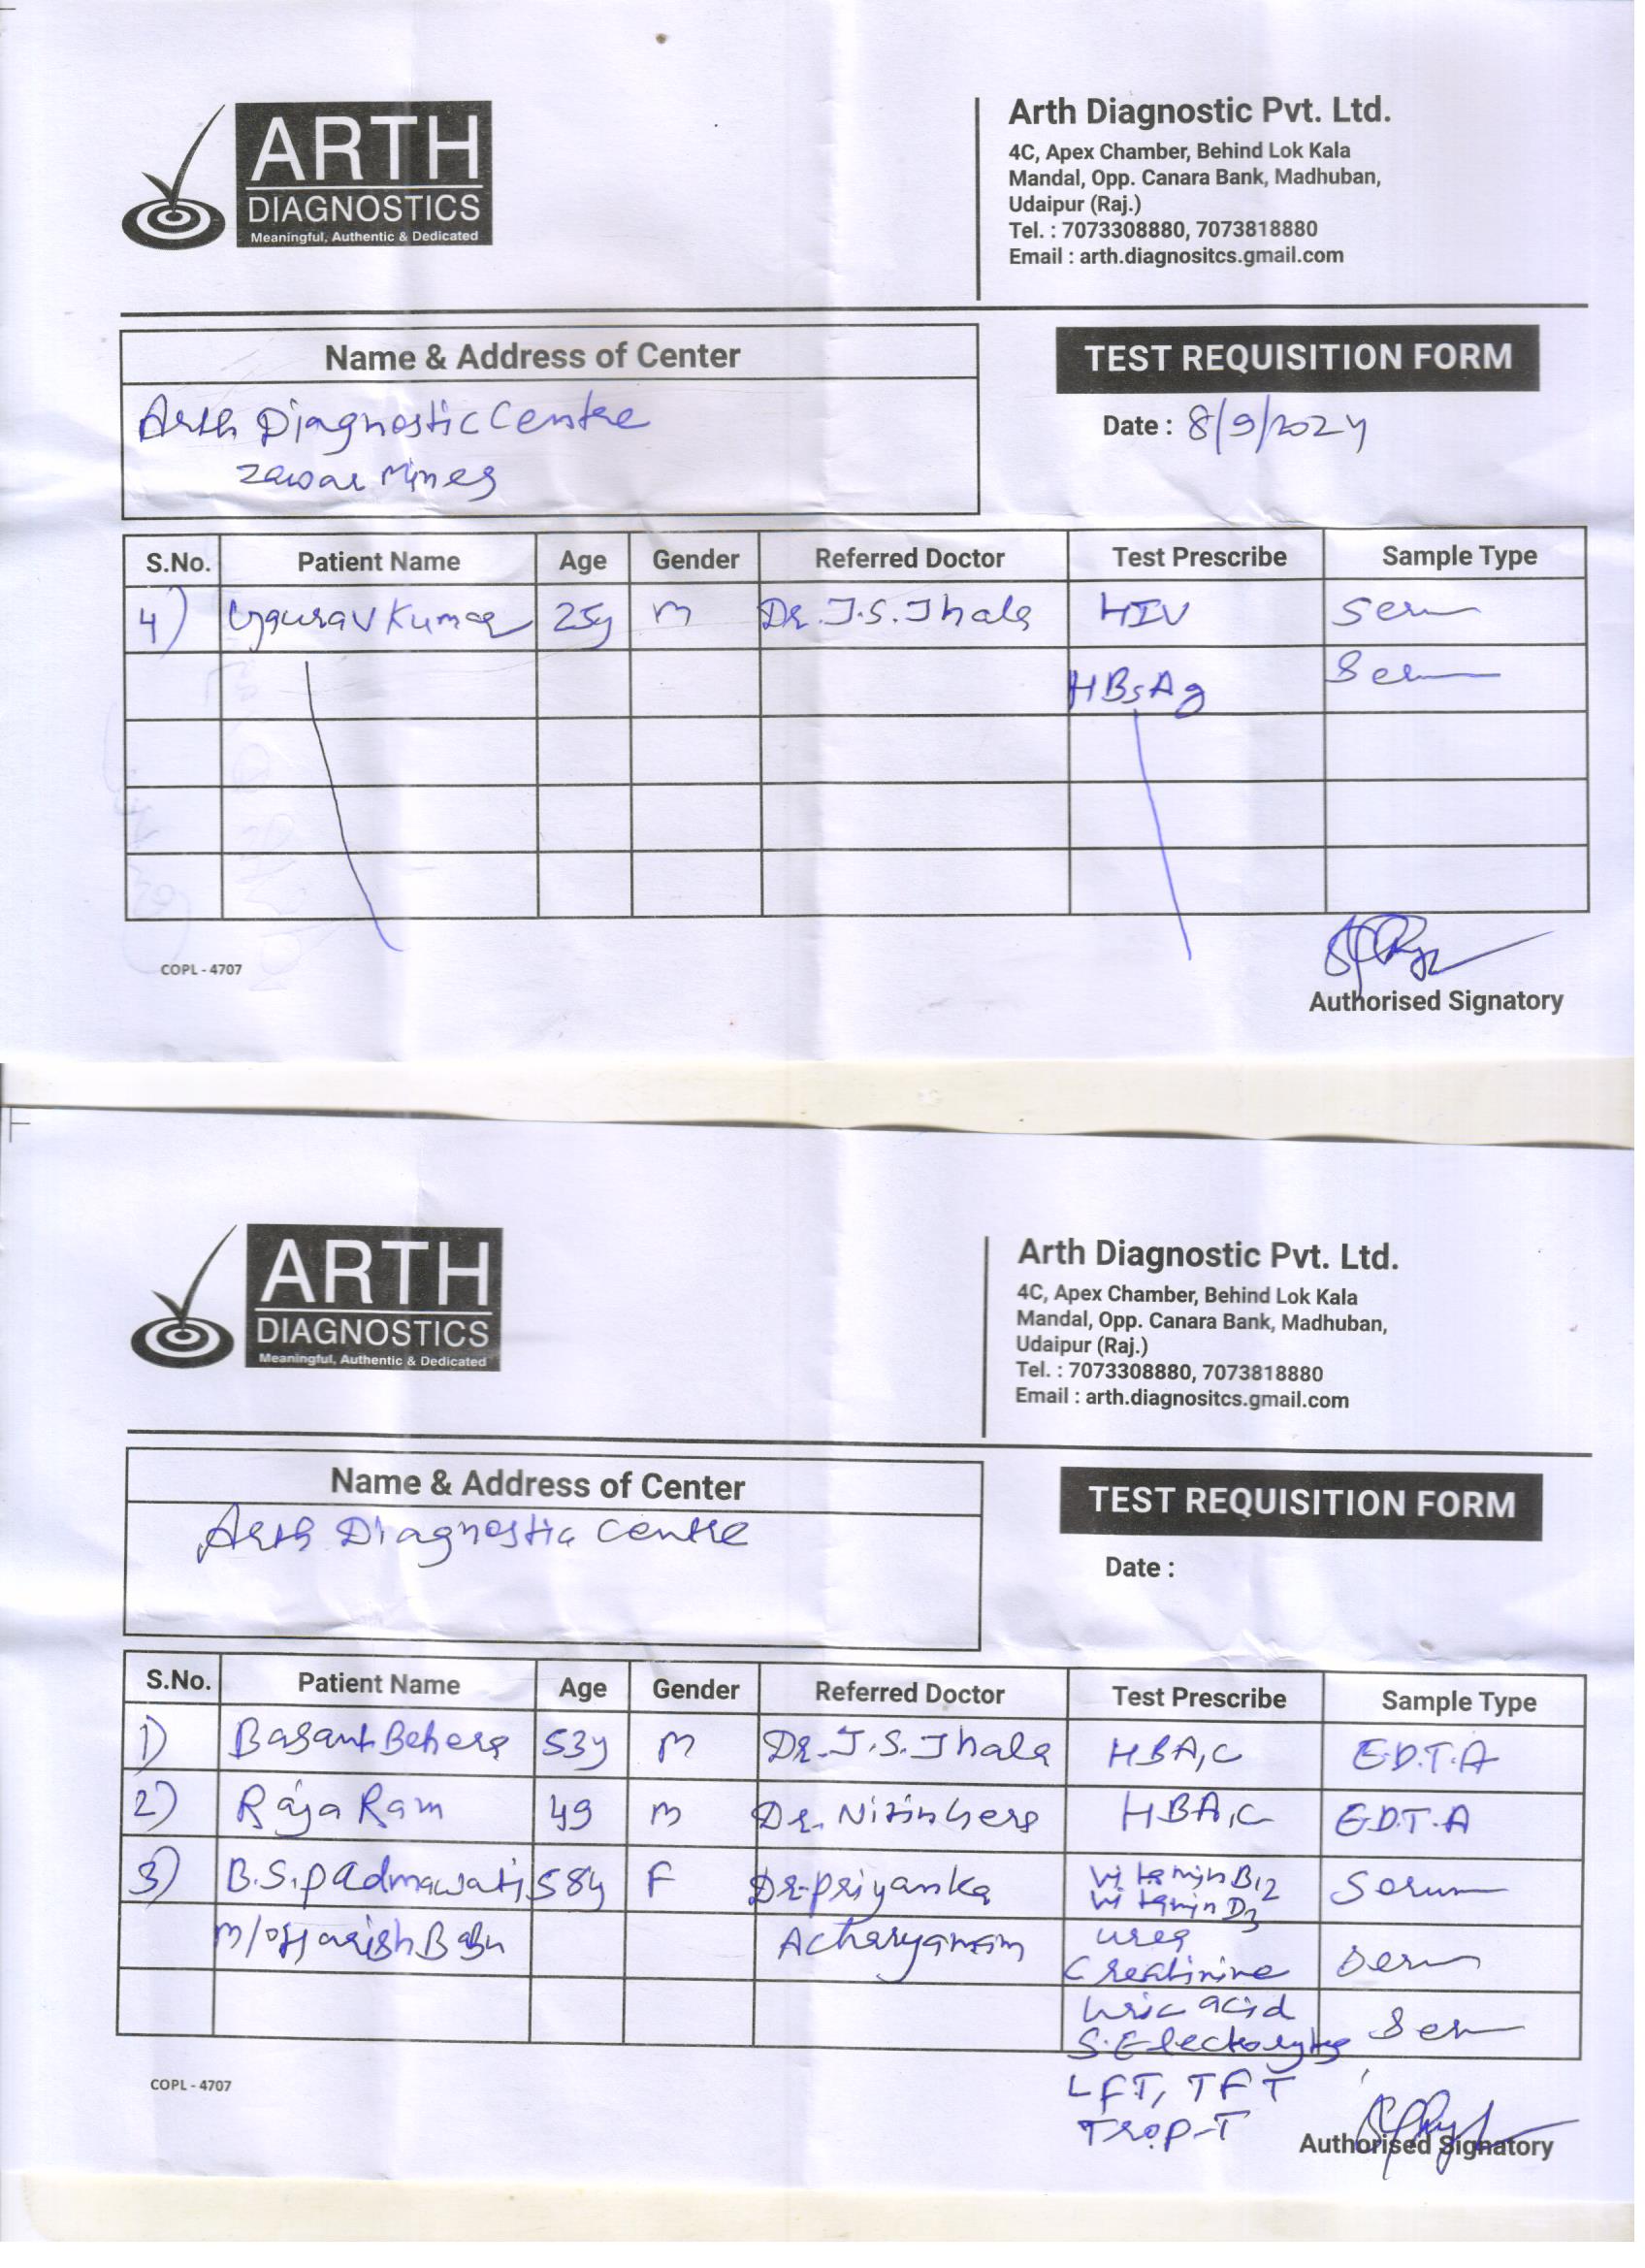 ARTH
DIAGNOSTICS
Meaningful, Authentic & Dedicated
Arth Diagnostic Pvt. Ltd.
4C, Apex Chamber, Behind Lok Kala
Mandal, Opp. Canara Bank, Madhuban,
Udaipur (Raj.)
Tel. : 7073308880, 7073818880
Email : arth.diagnositcs.gmail.com
Name & Address of Center
Arth Diagnostic Centre
Zawar Mines
TEST REQUISITION FORM
Date : 8/9/2024
S.No. Patient Name Age Gender Referred Doctor Test Prescribe Sample Type
4) Gaurav Kumar 25y M Dr. J.S. Jhala HIV Serum
HBsAg Serum
COPL - 4707
Authorised Signatory
ARTH
DIAGNOSTICS
Meaningful, Authentic & Dedicated
Arth Diagnostic Pvt. Ltd.
4C, Apex Chamber, Behind Lok Kala
Mandal, Opp. Canara Bank, Madhuban,
Udaipur (Raj.)
Tel. : 7073308880, 7073818880
Email : arth.diagnositcs.gmail.com
Name & Address of Center
Arth Diagnostic Centre
TEST REQUISITION FORM
Date :
S.No. Patient Name Age Gender Referred Doctor Test Prescribe Sample Type
1) Basant Behera 53y M Dr. J.S. Jhala HBA1C E.D.T.A
2) Raja Ram 49 M Dr. Nitin HBA1C E.D.T.A
3) B.S. Padmawati 58y F Dr. Priyanka Vitamin B12 Serum
Vitamin D3
M/o Harish Babu Acharya mam Urea
Creatinine Serum
Uric acid
S. Electrolytes Serum
LFT, TFT
Trop-T
COPL - 4707
Authorised Signatory